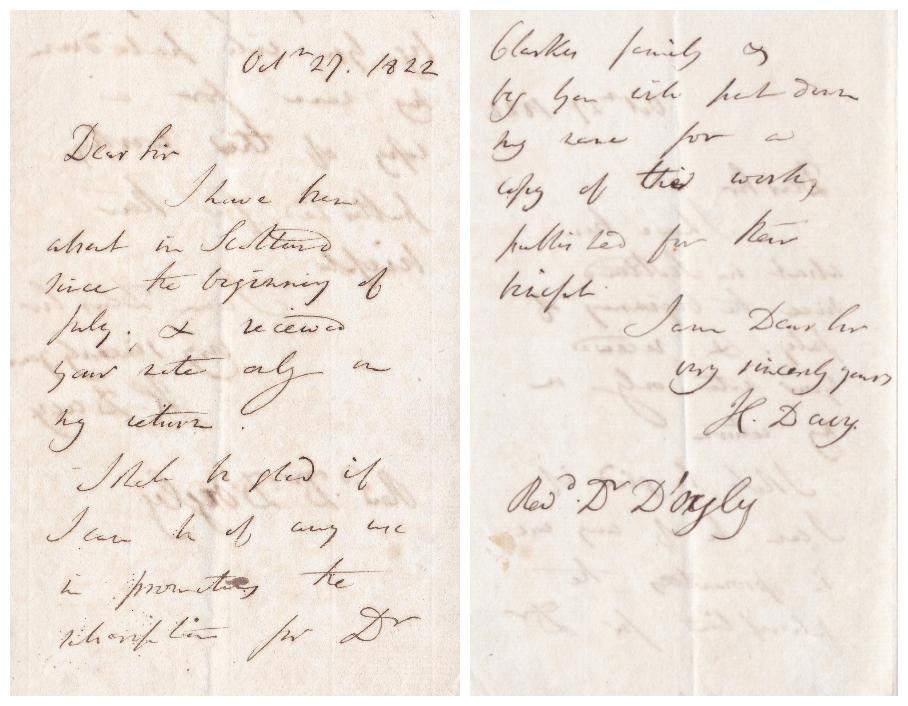 Octr 27. 1822
Dear Sir
I have been
absent in Scotland
since the beginning of
July. & received
your note only on
my return.
I shall be glad if
I can be of any use
in promoting the
subscription for Dr
Clarkes family &
beg you will put down
my name for a
copy of the works
published for their
benefit.
I am Dear Sir
very sincerely yours
H. Davy.
Revd. Dr D'oyly